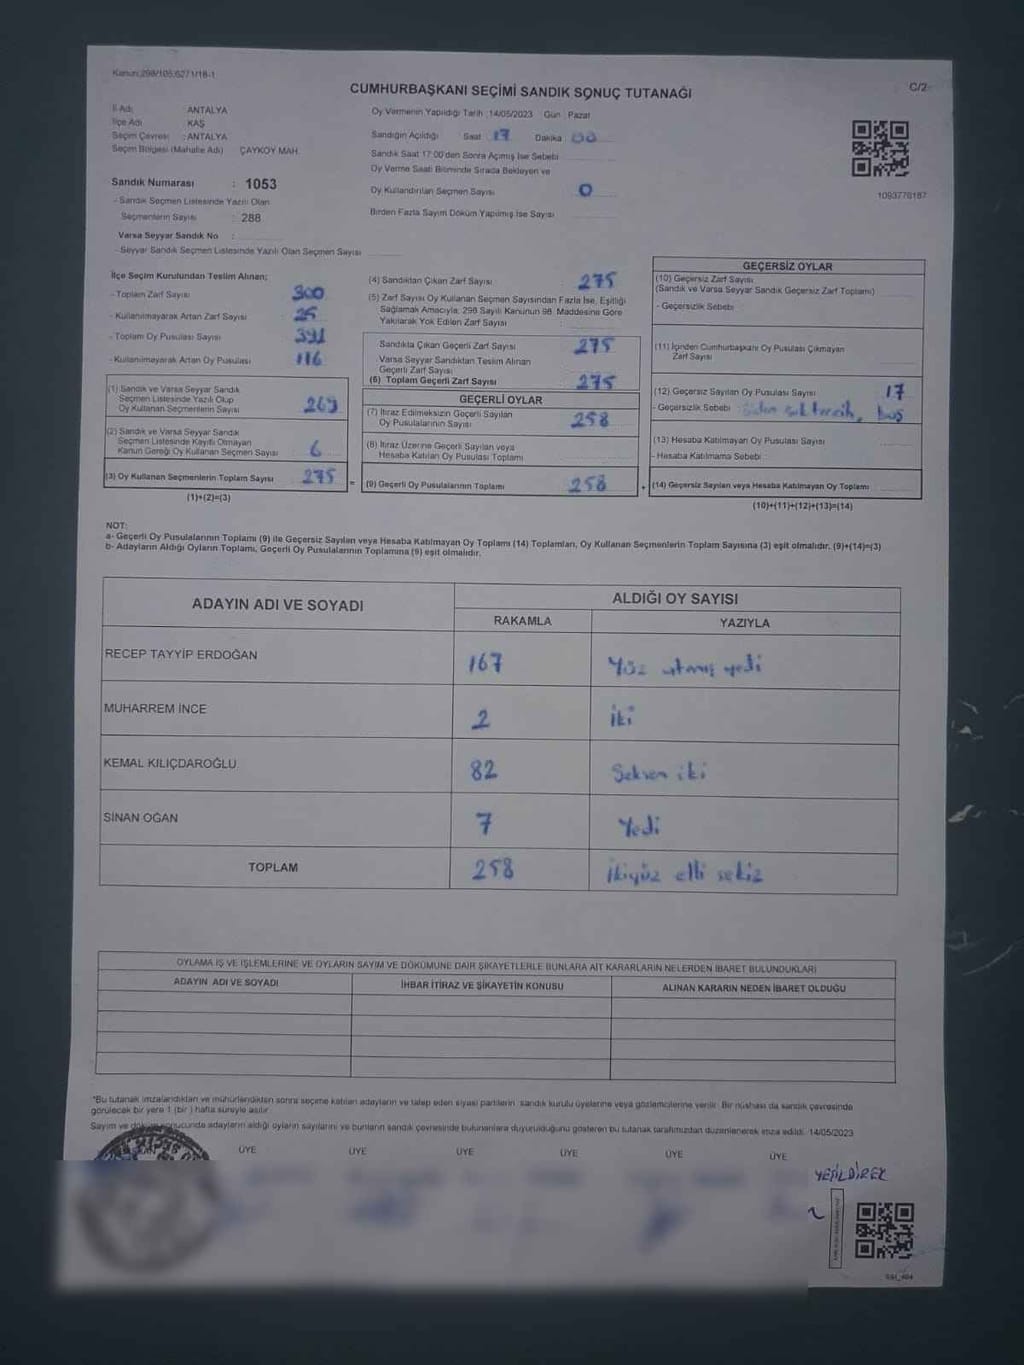 Kanun:298/105;6271/18-1
CUMHURBAŞKANI SEÇİMİ SANDIK SONUÇ TUTANAĞI
C/2
İl Adı : ANTALYA
İlçe Adı : KAŞ
Seçim Çevresi : ANTALYA
Seçim Bölgesi (Mahalle Adı) ÇAYKÖY MAH.
Sandık Numarası : 1053
- Sandık Seçmen Listesinde Yazılı Olan
Seçmenlerin Sayısı : 288
Varsa Seyyar Sandık No :
- Seyyar Sandık Seçmen Listesinde Yazılı Olan Seçmen Sayısı
Oy Vermenin Yapıldığı Tarih :14/05/2023 Gün : Pazar
Sandığın Açıldığı Saat : 17 Dakika 00
Sandık Saat 17:00'den Sonra Açımış İse Sebebi
Oy Verme Saati Bitiminde Sırada Bekleyen ve
Oy Kullandırılan Seçmen Sayısı 0
Birden Fazla Sayım Döküm Yapılmış İse Sayısı
1093776187
İlçe Seçim Kurulundan Teslim Alınan;
- Toplam Zarf Sayısı 300
- Kullanılmayarak Artan Zarf Sayısı 25
- Toplam Oy Pusulası Sayısı 391
- Kullanılmayarak Artan Oy Pusulası 116
(1) Sandık ve Varsa Seyyar Sandık
Seçmen Listesinde Yazılı Olup
Oy Kullanan Seçmenlerin Sayısı 269
(2) Sandık ve Varsa Seyyar Sandık
Seçmen Listesinde Kayıtlı Olmayan
Kanun Gereği Oy Kullanan Seçmen Sayısı 6
(3) Oy Kullanan Seçmenlerin Toplam Sayısı 275
(1)+(2)=(3)
(4) Sandıktan Çıkan Zarf Sayısı 275
(5) Zarf Sayısı Oy Kullanan Seçmen Sayısından Fazla İse, Eşitliği
Sağlamak Amacıyla; 298 Sayılı Kanunun 98. Maddesine Göre
Yakılarak Yok Edilen Zarf Sayısı
Sandıkta Çıkan Geçerli Zarf Sayısı 275
Varsa Seyyar Sandıktan Teslim Alınan
Geçerli Zarf Sayısı
(6) Toplam Geçerli Zarf Sayısı 275
GEÇERLİ OYLAR
(7) İtiraz Edilmeksizin Geçerli Sayılan
Oy Pusulalarının Sayısı 258
(8) İtiraz Üzerine Geçerli Sayılan veya
Hesaba Katılan Oy Pusulası Toplamı
= (9) Geçerli Oy Pusulalarının Toplamı 258 +
GEÇERSİZ OYLAR
(10) Geçersiz Zarf Sayısı
(Sandık ve Varsa Seyyar Sandık Geçersiz Zarf Toplamı)
- Geçersizlik Sebebi
(11) İçinden Cumhurbaşkanı Oy Pusulası Çıkmayan
Zarf Sayısı
(12) Geçersiz Sayılan Oy Pusulası Sayısı 17
- Geçersizlik Sebebi : Birden çok tercih, boş
(13) Hesaba Katılmayan Oy Pusulası Sayısı
- Hesaba Katılmama Sebebi
(14) Geçersiz Sayılan veya Hesaba Katılmayan Oy Toplamı
(10)+(11)+(12)+(13)=(14)
NOT:
a- Geçerli Oy Pusulalarının Toplamı (9) ile Geçersiz Sayılan veya Hesaba Katılmayan Oy Toplamı (14) Toplamları, Oy Kullanan Seçmenlerin Toplam Sayısına (3) eşit olmalıdır. (9)+(14)=(3)
b- Adayların Aldığı Oyların Toplamı, Geçerli Oy Pusulalarının Toplamına (9) eşit olmalıdır.
ADAYIN ADI VE SOYADI
ALDIĞI OY SAYISI
RAKAMLA YAZIYLA
RECEP TAYYİP ERDOĞAN 167 Yüz atmış yedi
MUHARREM İNCE 2 iki
KEMAL KILIÇDAROĞLU 82 Seksen iki
SİNAN OĞAN 7 Yedi
TOPLAM 258 ikiyüz elli sekiz
OYLAMA İŞ VE İŞLEMLERİNE VE OYLARIN SAYIM VE DÖKÜMÜNE DAİR ŞİKAYETLERLE BUNLARA AİT KARARLARIN NELERDEN İBARET BULUNDUKLARI
ADAYIN ADI VE SOYADI İHBAR İTİRAZ VE ŞİKAYETİN KONUSU ALINAN KARARIN NEDEN İBARET OLDUĞU
*Bu tutanak imzalandıktan ve mühürlendikten sonra seçime katılan adayların ve talep eden siyasi partilerin sandık kurulu üyelerine veya gözlemcilerine verilir. Bir nüshası da sandık çevresinde
görülecek bir yere 1 (bir ) hafta süreyle asılır.
Sayım ve döküm sonucunda adayların aldığı oyların sayılarını ve bunların sandık çevresinde bulunanlara duyurulduğunu gösteren bu tutanak tarafımızdan düzenlenerek imza edildi. 14/05/2023
ÜYE ÜYE ÜYE ÜYE ÜYE ÜYE
YEŞİLDİREK